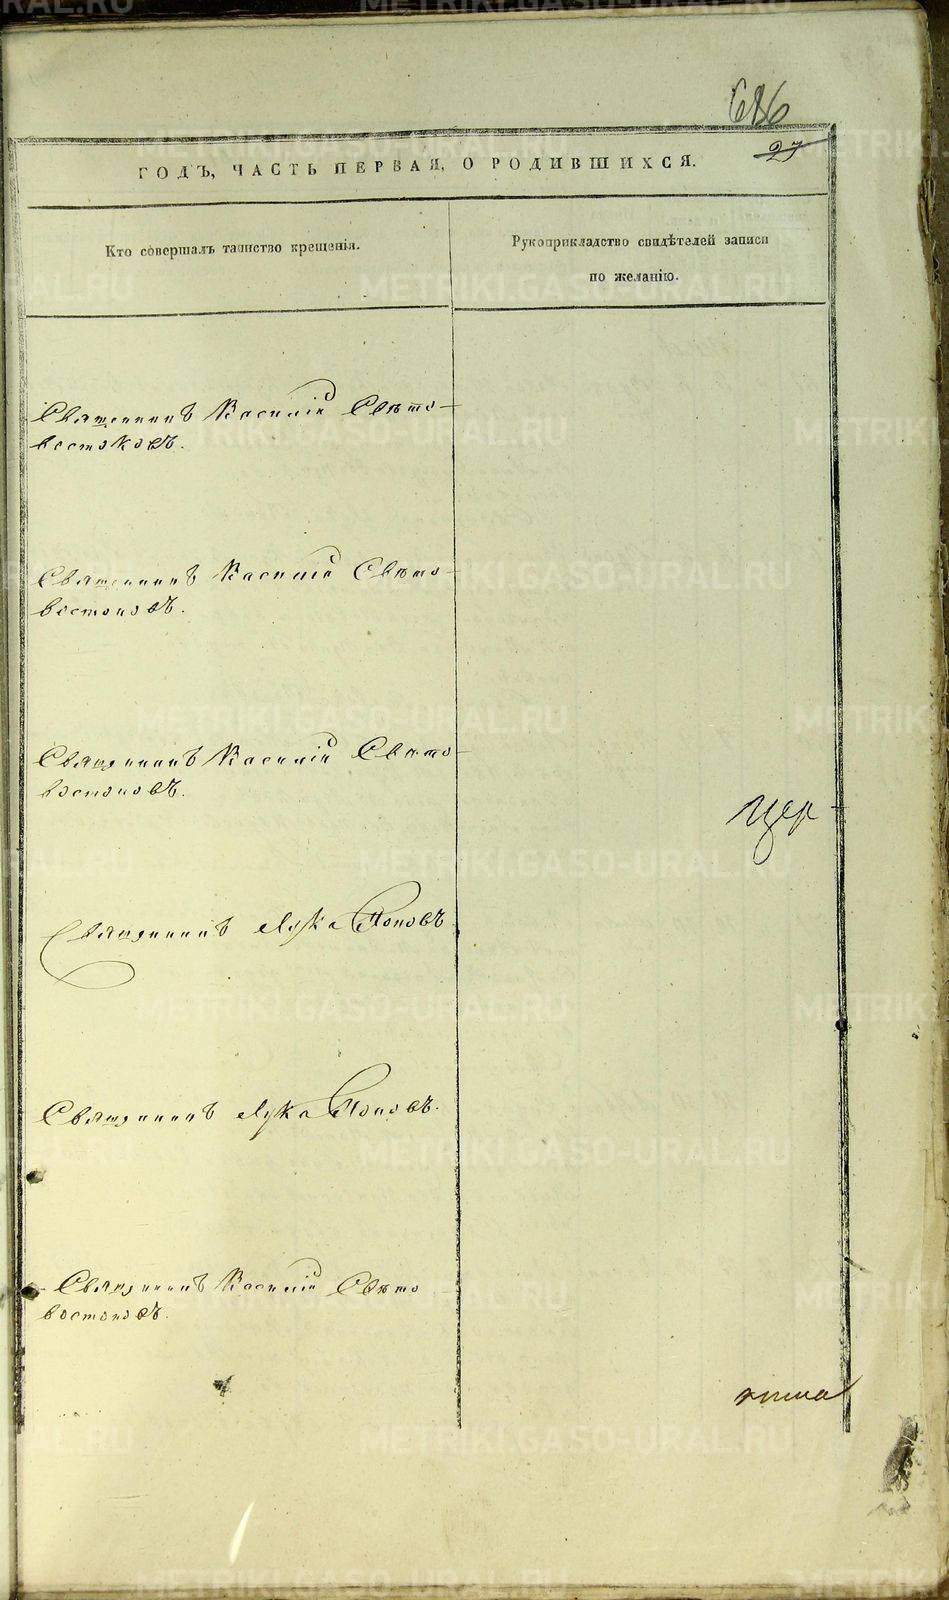 27
ГОДЪ, ЧАСТЬ ПЕРВАЯ, О РОДИВШИХСЯ.
Кто совершалъ таинство крещенія.
Рукоприкладство свидѣтелей записи
по желанію.
Священникъ Василій Свѣто-
востоковъ.
Священникъ Василій Свѣто-
востоковъ.
Священникъ Василій Свѣто-
востоковъ.
цер-
Священникъ Лука Поповъ.
Священникъ Лука Поповъ.
Священникъ Василій Свѣто
востоковъ.
METRIKI.GASO-URAL.RU